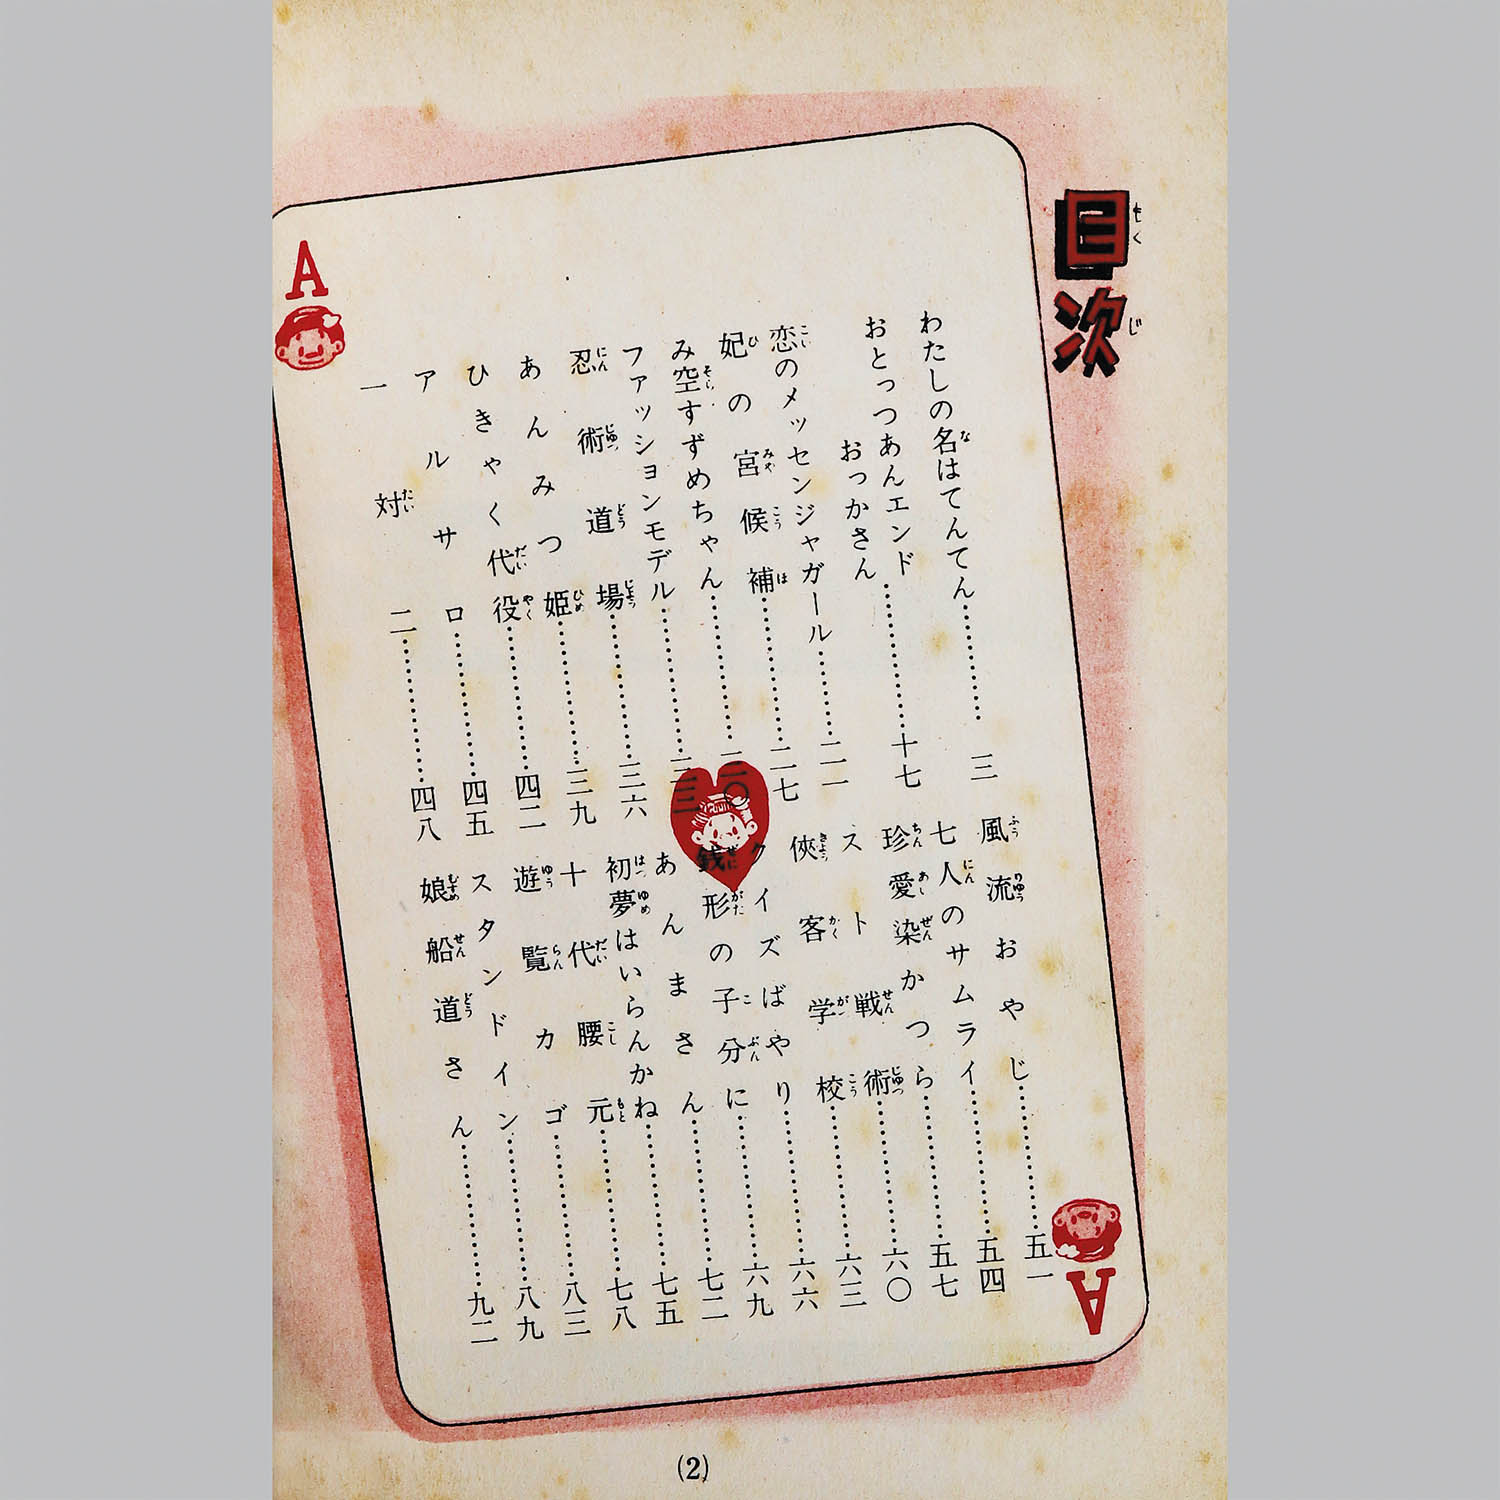 目次
もくじ
わたしの名はてんてん…………三
おとっつあんエンドおっかさん…………十七
恋のメッセンジャガール…………二一
妃の宮候補…………二七
み空すずめちゃん…………三〇
ファッションモデル…………三三
忍術道場…………三六
あんみつ姫…………三九
ひきゃく代役…………四二
アルサロ…………四五
一対二…………四八
風流おやじ…………五一
七人のサムライ…………五四
珍愛染かつら…………五七
スト戦術…………六〇
侠客学校…………六三
クイズばやり…………六六
銭形の子分に…………六九
あんまさん…………七二
初夢はいらんかね…………七五
十代腰元…………七八
遊覧カゴ…………八三
スタンドイン…………八九
娘船道さん…………九二
A
A
(2)